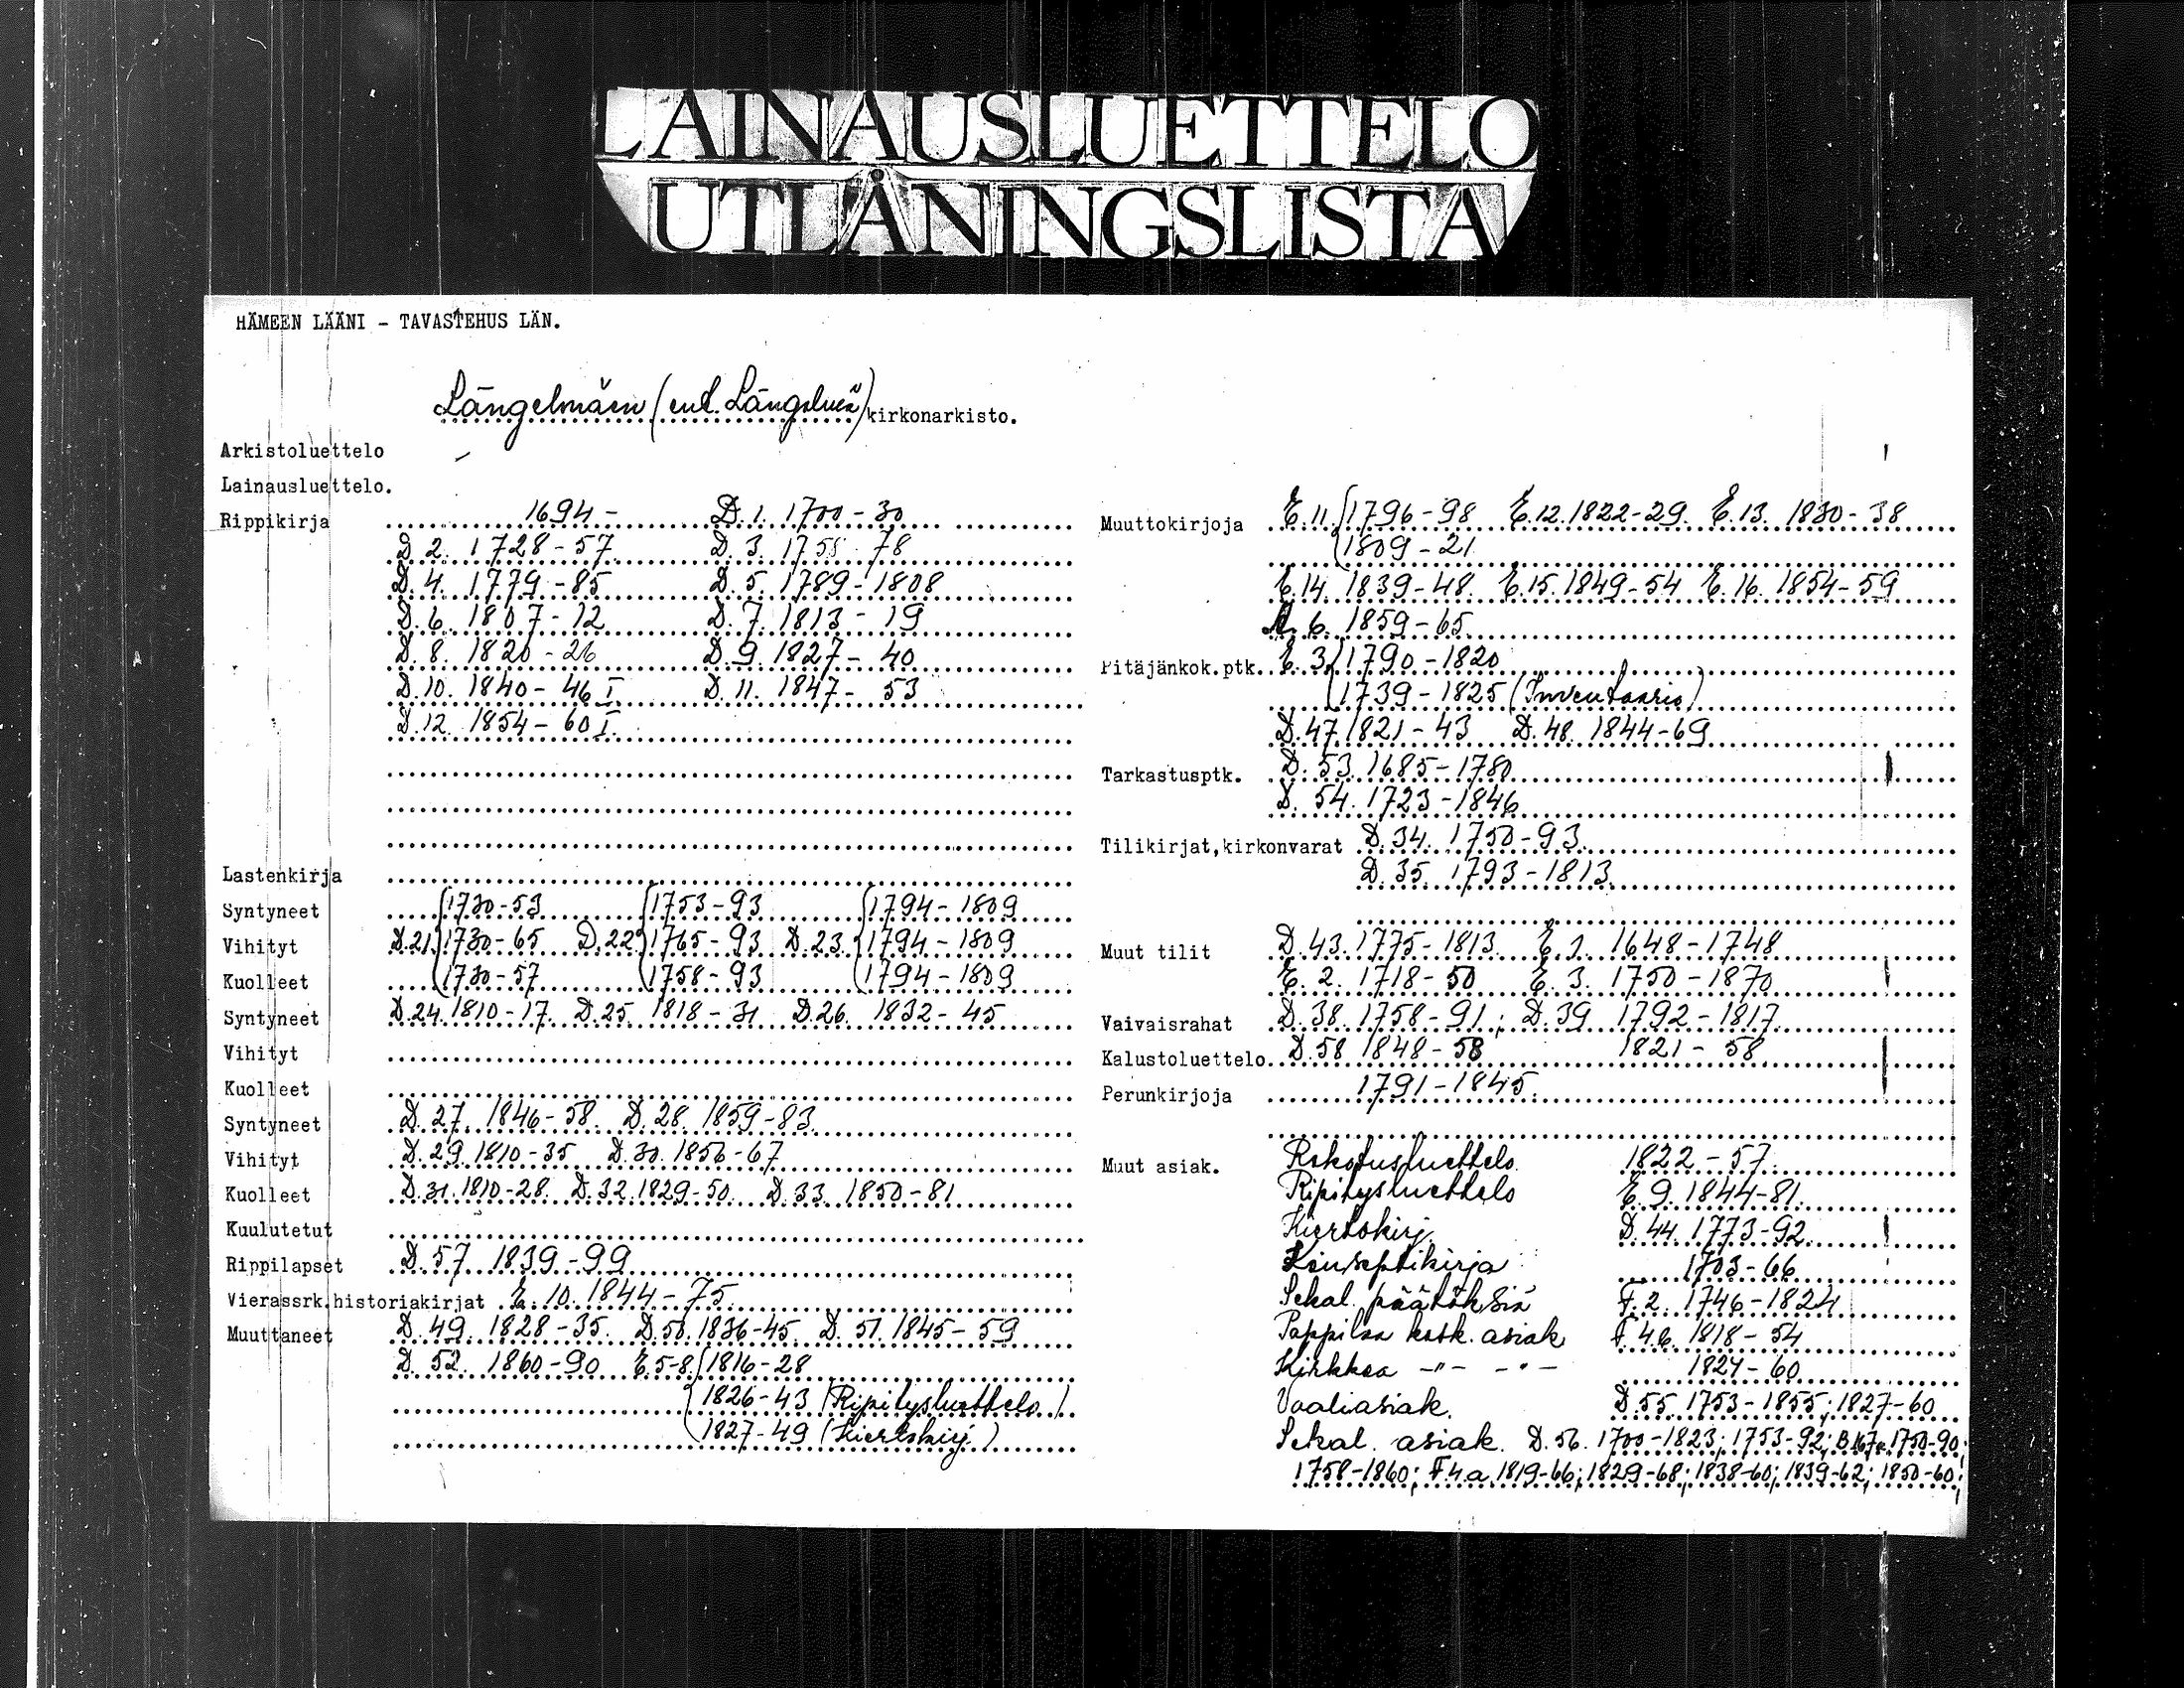 LAINAUSLUETTELO
UTLÅNINGSLISTA
HÄMEEN LÄÄNI - TAVASTEHUS LÄN.
Längelmäen (ent. Längelmä) kirkonarkisto.
Arkistoluettelo -
Lainausluettelo.
Rippikirja 1694- D.1. 1700-30
D.2. 1728-57 D.3. 1758-78
D.4. 1779-85 D.5. 1789-1808
D.6. 1807-12 D.7. 1813-19
D.8. 1820-26 D.9. 1827-40
D.10. 1840-46 I D.11. 1847-53
D.12. 1854-60 I.
Lastenkirja
Syntyneet 1730-53 1753-93 1794-1809
Vihityt D.21. 1730-65 D.22. 1765-93 D.23. 1794-1809
Kuolleet 1730-57 1758-93 1794-1809
Syntyneet D.24. 1810-17 D.25. 1818-31 D.26. 1832-45
Vihityt
Kuolleet
Syntyneet D.27. 1846-58. D.28. 1859-83.
Vihityt D.29. 1810-35 D.30. 1856-67
Kuolleet D.31. 1810-28. D.32. 1829-50. D.33. 1850-81
Kuulutetut
Rippilapset D.57. 1839-99
Vierassrk.historiakirjat E.10. 1844-75
Muuttaneet D.49. 1828-35. D.50. 1836-45. D.51. 1845-59
D.52. 1860-90 E.5-8 1816-28
1826-43 (Ripitysluettelo.)
1827-49 (Kiertokirj.)
Muuttokirjoja E.11. 1796-98 E.12. 1822-29. E.13. 1830-38
1809-21
E.14. 1839-48. E.15. 1849-54 E.16. 1854-59
A.6. 1859-65
Pitäjänkok.ptk. E.3. 1790-1820
1739-1825 (Inventaario)
D.47. 1821-43 D.48. 1844-69
Tarkastusptk. D.53. 1685-1780
D.54. 1723-1846
Tilikirjat,kirkonvarat D.34. 1750-93
D.35. 1793-1813
Muut tilit D.43. 1775-1813 E.1. 1648-1748
E.2. 1718-50 E.3. 1750-1870
Vaivaisrahat D.38. 1758-91; D.39 1792-1817
Kalustoluettelo D.58 1848-58 1821-58
Perunkirjoja 1791-1845
Muut asiak. Rokotusluettelo 1822-57.
Ripitysluettelo E.9. 1844-81.
Kiertokirj. D.44. 1773-92
Konseptikirja 1703-66
Sekal. päätöksiä F.2. 1746-1824
Pappilaa kosk. asiak F.4.b. 1818-54
Kirkkoa -"- -"- 1824-60
Vaaliasiak. D.55. 1753-1855; 1827-60
Sekal. asiak. D.56. 1700-1823; 1753-92; 1750-90;
1758-1860; F.4.a. 1819-66; 1829-68; 1838-60; 1839-62; 1850-60;